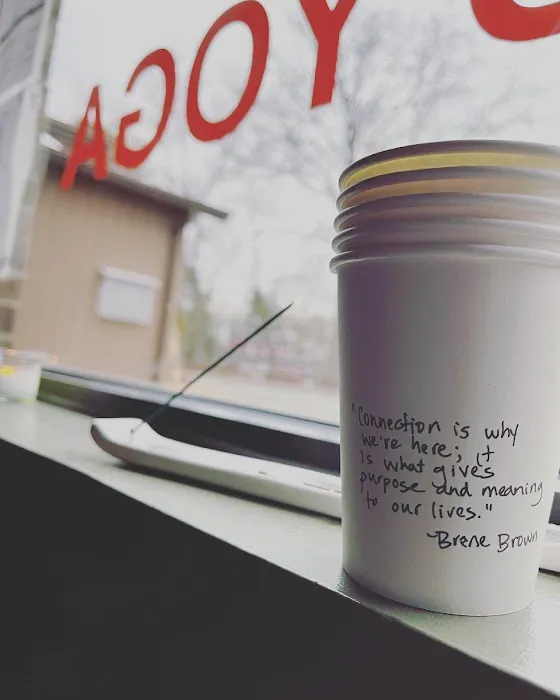 YOGA
"Connection is why
we're here; it
is what gives
purpose and meaning
to our lives."
~Brene Brown